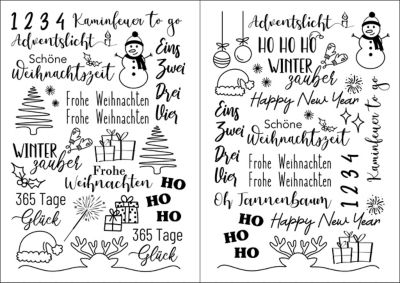 1 2 3 4 Kaminfeuer to go
Adventslicht
Schöne
Weihnachtszeit
Eins
Zwei
Drei
Vier
Frohe Weihnachten
Frohe Weihnachten
WINTER
zauber
Frohe
Weihnachten
365 Tage
Glück
HO
HO
HO
365 Tage
Glück
Adventslicht
HO HO HO
WINTER
zauber
Happy New Year
Eins
Zwei
Drei
Vier
Schöne
Weihnachtszeit
Frohe Weihnachten
Frohe Weihnachten
Oh Tannenbaum
1 2 3 4
Kaminfeuer to go
Happy New Year
HO
HO
HO